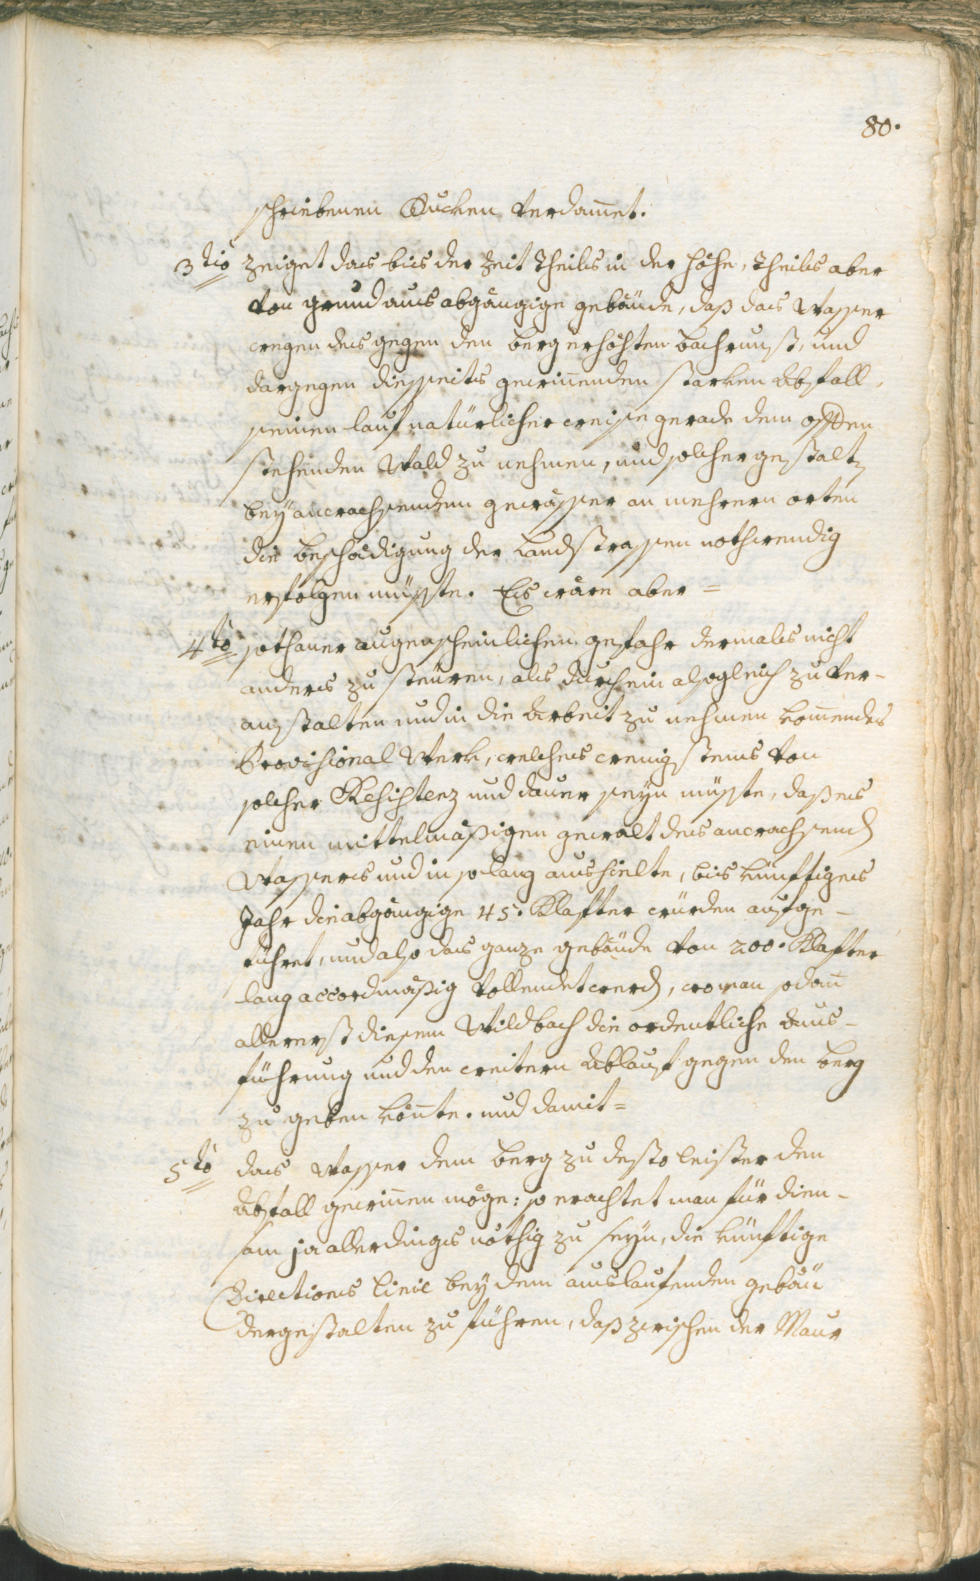 80.
schriebenen Rucken verdammet.
3tio zeiget das bis der Zeit Theils in der höhe, Theils aber
von grund aus abgängige gebäude, daß das Wasser
wegen des gegen den berg erhöhten bachrunst, und
dargegen diesseits gewinnenden starken Abfall,
seinen lauf natürlicher weise gerade dem offen
stehenden Wald zu nehmen, und solcher gestalt
bey anwachsendem gewässer an mehrern orten
die beschädigung der Landstrassen nothwendig
erfolgen müsste. Es wäre aber =
4to sothaner augenscheinlichen gefahr dermals nicht
anders zu steüren, als durch ein alsogleich zu ver-
anstalten und in die Arbeit zu nehmen kommendes
Provisional Werk, welches wenigstens von
solcher Resistenz und dauer seyn müsste, daß es
einen mittelmäßigen gewalt des anwachsend
Wassers und in so lang aushielte, bis künftiges
Jahr die abgängige 45. Klafter würden aufge-
führet, und also das ganze gebäude von 200. Klafter
lang accordmäßig vollendet werd, wo man sodan
allererst diesem Wildbach die ordentliche Aus-
führung und den weitern Ablauf gegen den berg
zu geben könnte. und damit =
5to das Wasser dem berg zu desto leister den
Abfall gewinnen möge: so erachtet man für dien-
sam ja allerdings nöthig zu seyn, die künftige
Directions Linie bey dem auslaufenden gebäu
dergestalten zu führen, daß zwischen der Maur